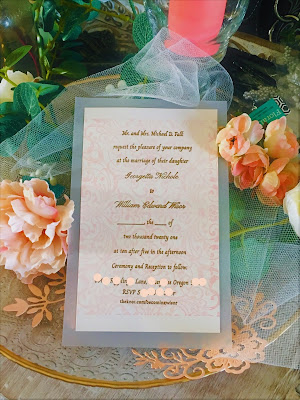 Mr. and Mrs. Michael D. Fall
request the pleasure of your company
at the marriage of their daughter
Georgette Nichole
to
William Edward
_______, the ___ of
two thousand twenty one
at ten after five in the afternoon
Ceremony and Reception to follow
Lane, Oregon
RSVP